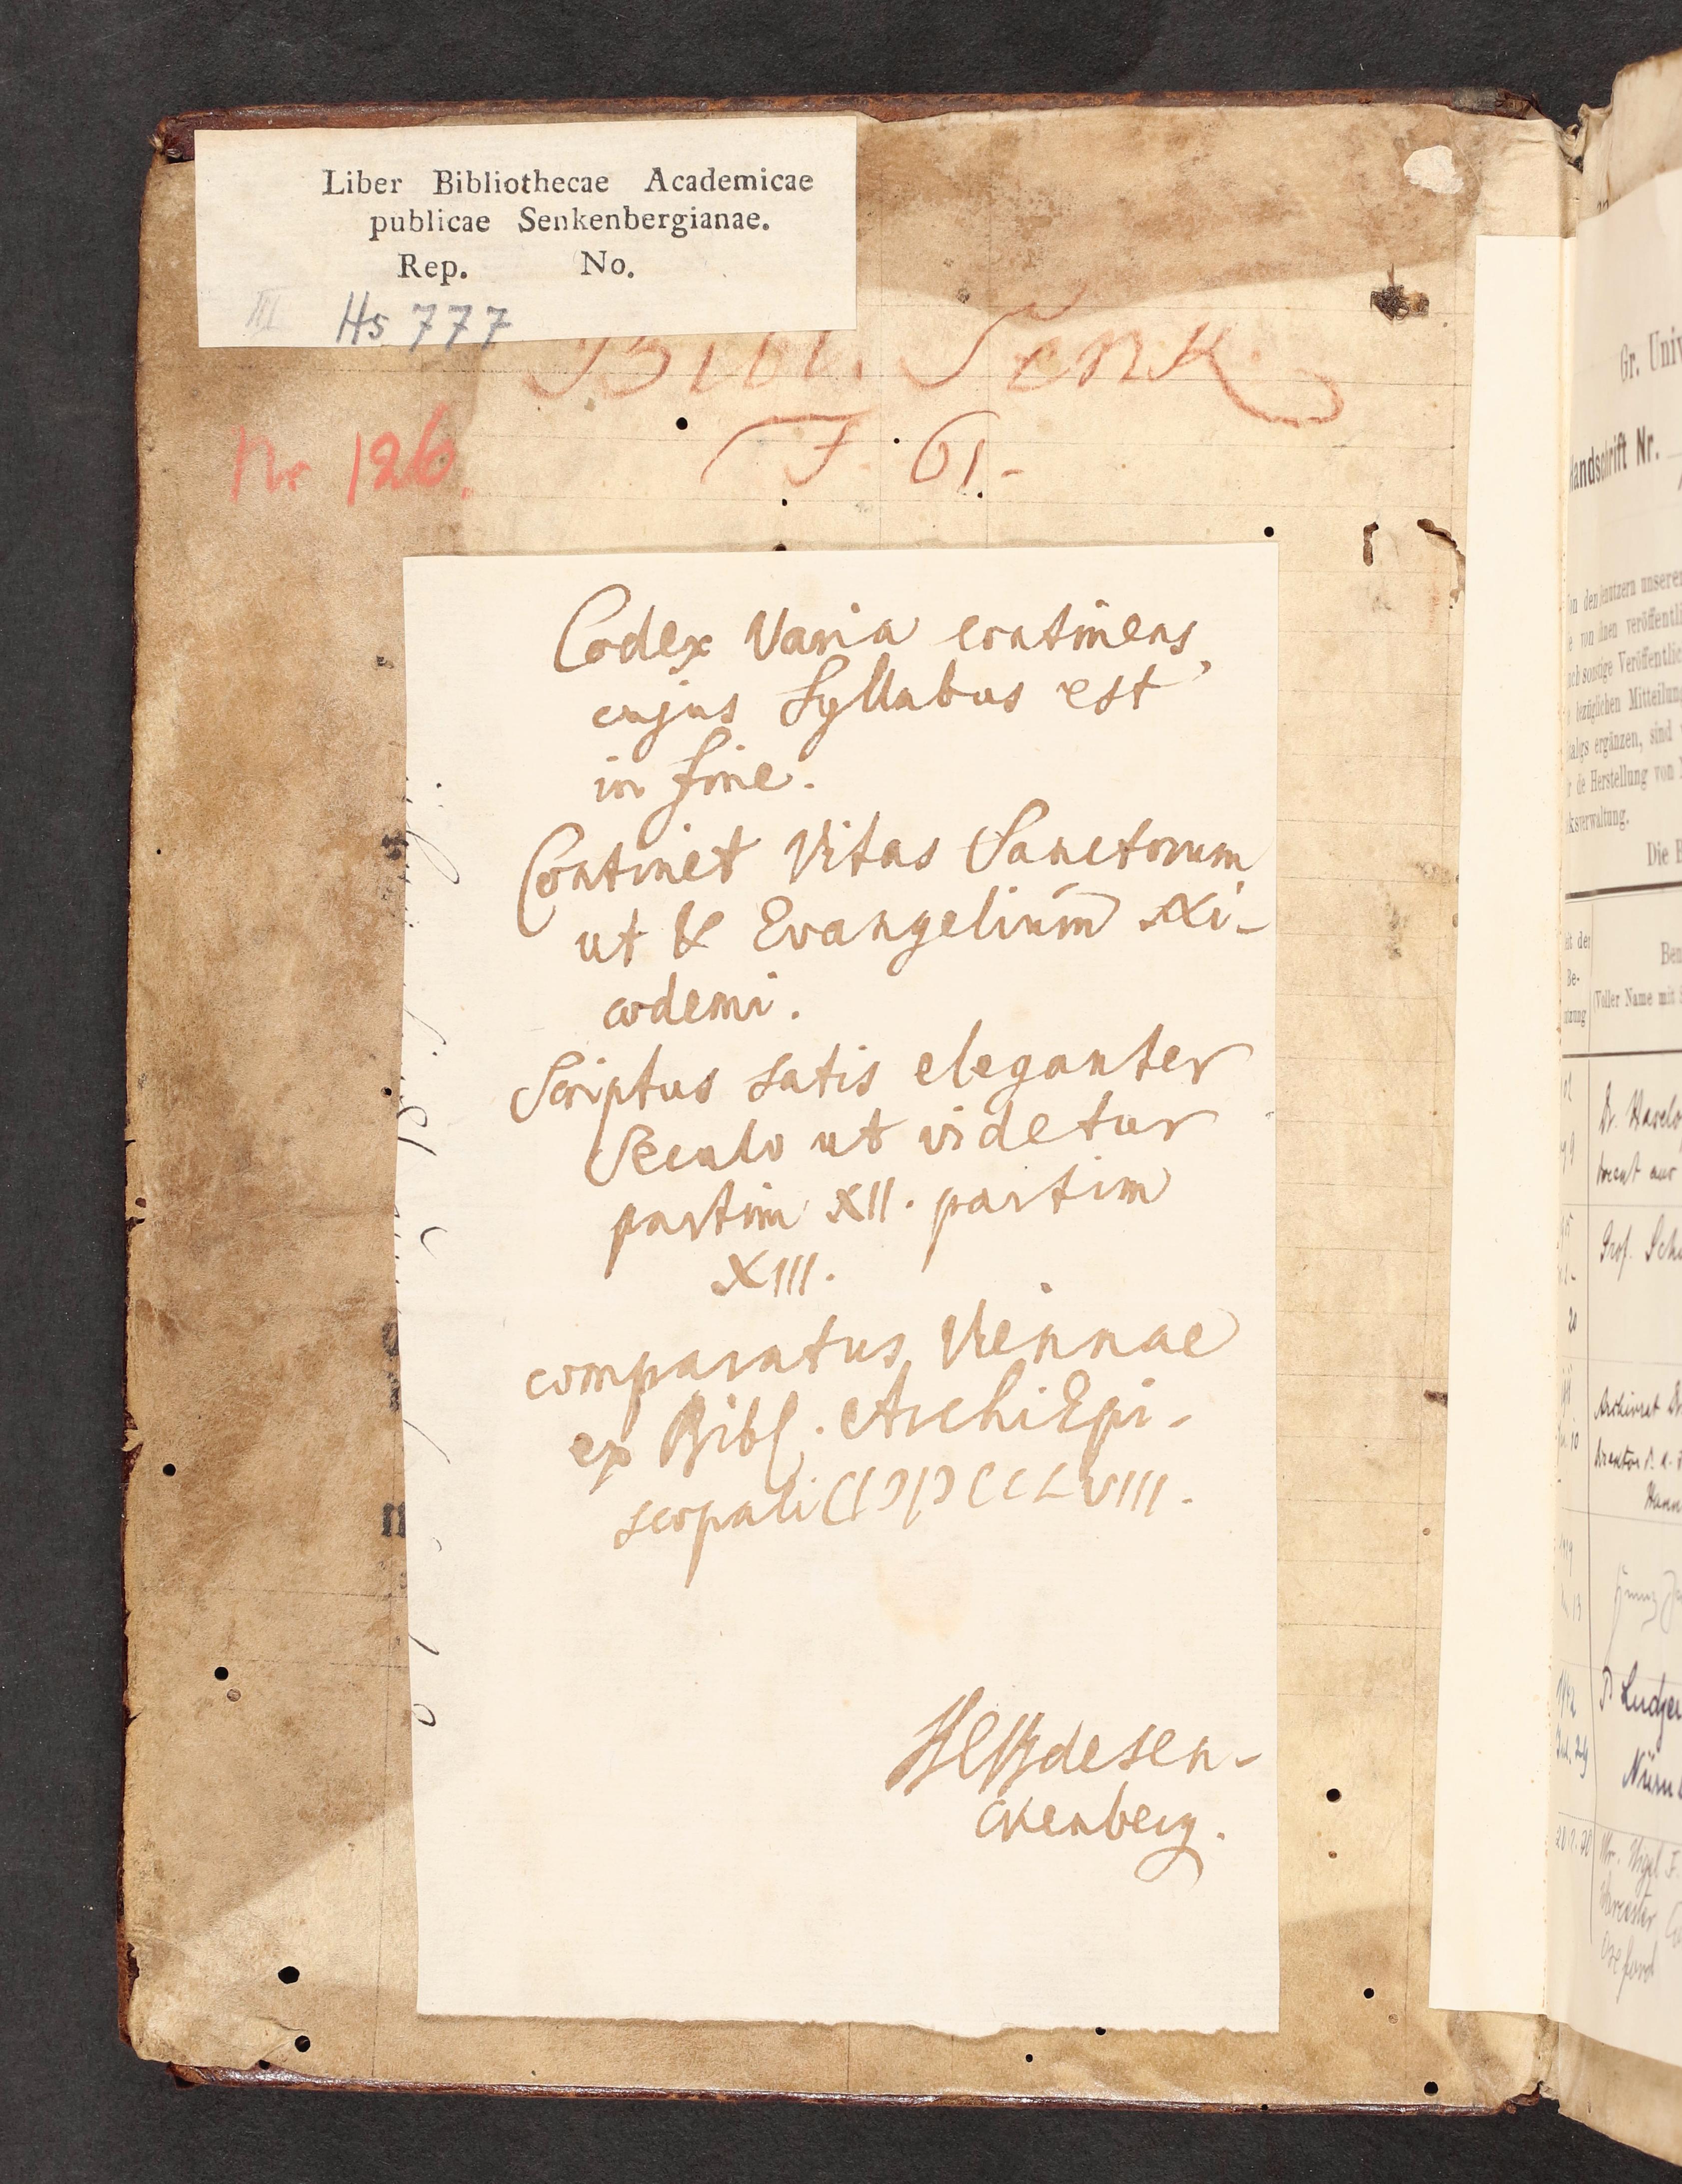 Liber Bibliothecae Academicae
publicae Senkenbergianae.
Rep. No.
III Hs 777
Bibl. Senk
Nr 126. F. 61-
Codex Varia continens,
cujus Syllabus est
in fine.
Continet Vitas Sanctorum
ut & Evangelium Ni-
codemi.
Scriptus satis eleganter
Seculo ut videtur
partim XII. partim
XIII.
comparatus Viennae
ex Bibl. ArchiEpi-
scopali CIƆIƆCCLVIII.
desen-
ckenberg.
Gr. Univ
Handschrift Nr.
den Benutzern unserer
von ihnen veröffentli
sonstige Veröffentlic
bezüglichen Mitteilung
ergänzen, sind
Herstellung von
ksverwaltung.
Die B
Be-
(Voller Name mit
Dr.
Prof. Sch
Archivrat
Direktor
P. Ludger
Nürn